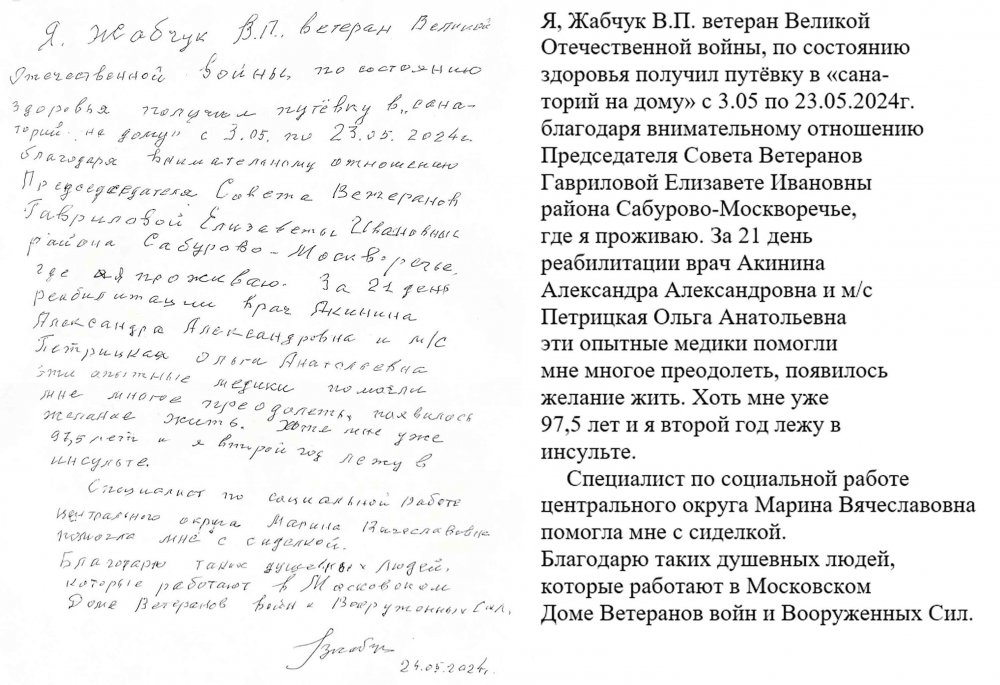 Я, Жабчук В.П. ветеран Великой
Отечественной войны, по состоянию
здоровья получил путёвку в „сана-
торий на дому" с 3.05 по 23.05.2024г.
благодаря внимательному отношению
Председателя Совета Ветеранов
Гавриловой Елизаветы Ивановны
района Сабурово-Москворечье,
где я проживаю. За 21 день
реабилитации врач Акинина
Александра Александровна и м/с
Петрицкая Ольга Анатольевна
эти опытные медики помогли
мне многое преодолеть, появилось
желание жить. Хотя мне уже
97,5 лет и я второй год лежу в
инсульте.
Специалист по социальной работе
центрального округа Марина Вячеславовна
помогла мне с сиделкой.
Благодарю таких душевных людей,
которые работают в Московском
Доме Ветеранов войн и Вооруженных Сил.
24.05.2024г.
Я, Жабчук В.П. ветеран Великой
Отечественной войны, по состоянию
здоровья получил путёвку в «сана-
торий на дому» с 3.05 по 23.05.2024г.
благодаря внимательному отношению
Председателя Совета Ветеранов
Гавриловой Елизавете Ивановны
района Сабурово-Москворечье,
где я проживаю. За 21 день
реабилитации врач Акинина
Александра Александровна и м/с
Петрицкая Ольга Анатольевна
эти опытные медики помогли
мне многое преодолеть, появилось
желание жить. Хоть мне уже
97,5 лет и я второй год лежу в
инсульте.
Специалист по социальной работе
центрального округа Марина Вячеславовна
помогла мне с сиделкой.
Благодарю таких душевных людей,
которые работают в Московском
Доме Ветеранов войн и Вооруженных Сил.